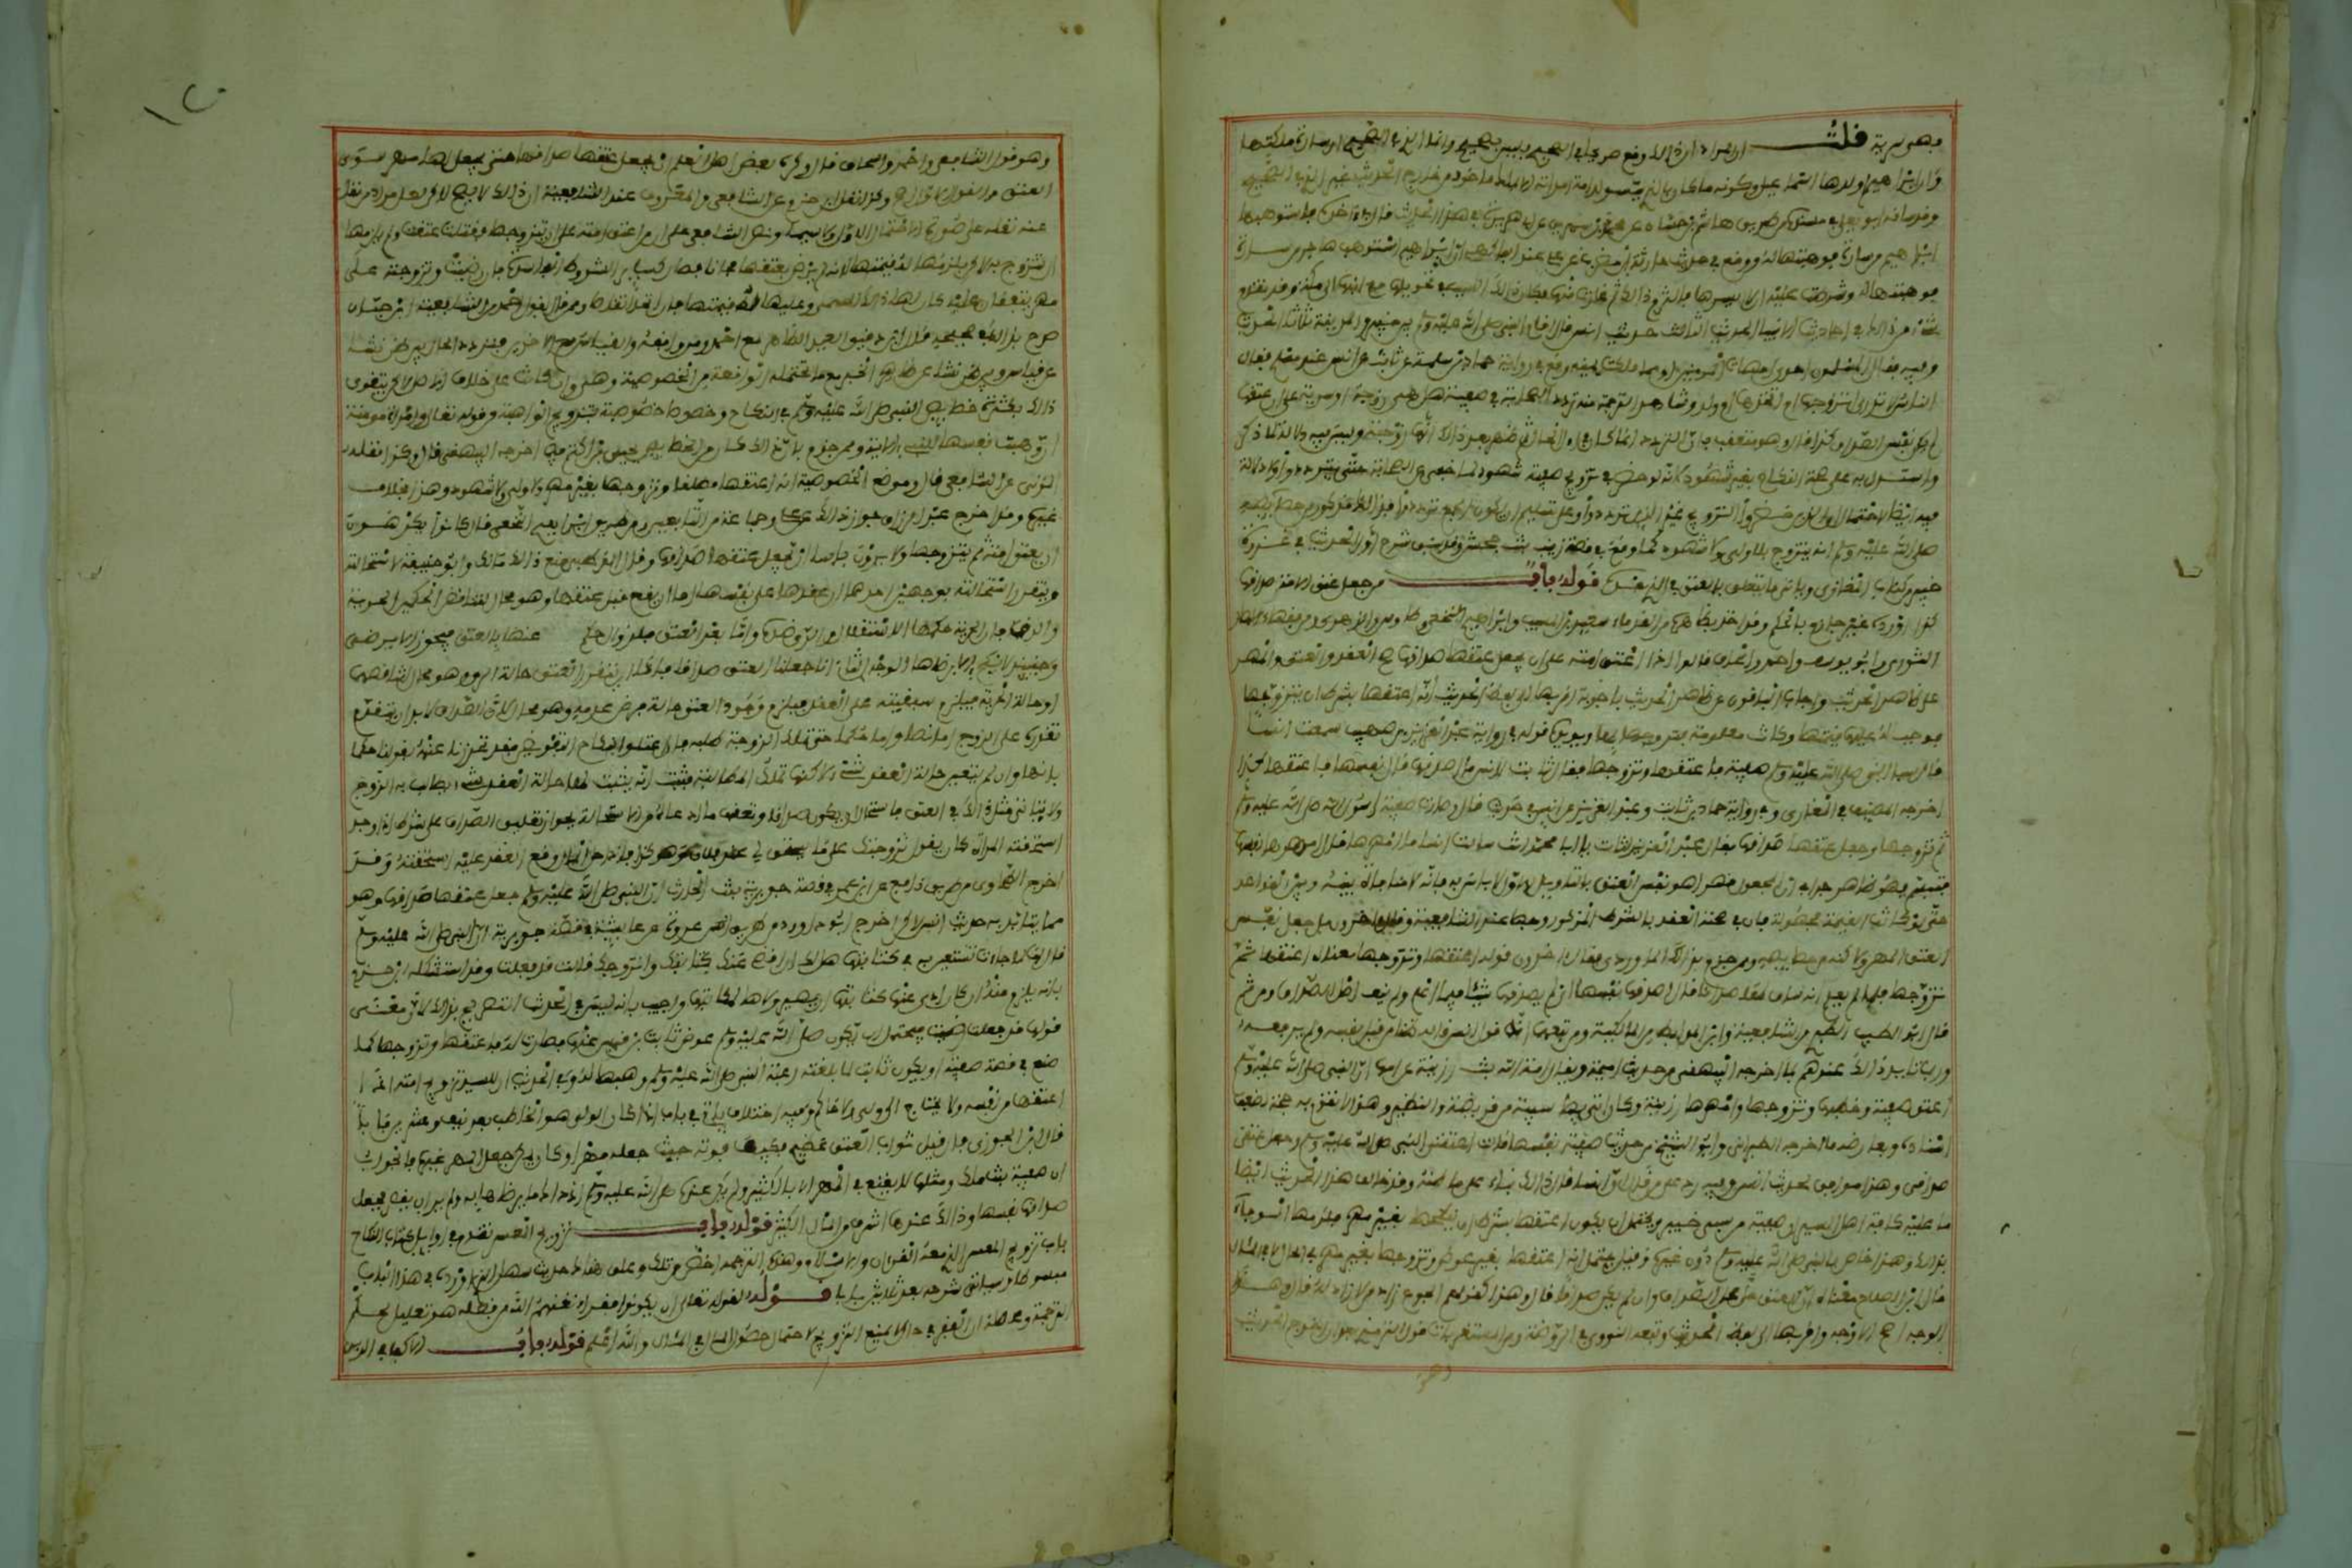 فهو سرية قلت ان اراد ان ذلك وقع صريحا في الصحيح فليس بصحيح وانما الذي في الصحيح ان سارة ملكتها
وان ابراهيم اولدها اسماعيل وكونه ما كان بالذي يستولد امة امراته الا بملك ماخوذ من خارج الحديث غير الذي في الصحيح
وقد ساقه ابو يعلى في مسنده من طريق هشام بن حسان عن محمد بن سيرين عن ابي هريرة في هذا الحديث قال في اخره فاستوهبها
ابراهيم من سارة فوهبتها له ووقع في حديث حارثة بن مضرب عن علي عند الفاكهي ان ابراهيم استوهب هاجر من سارة
فوهبتها له وشرطت عليه ان لا يسرها فالتزم ذلك ثم غارت منها فكان ذلك السبب في تحويلها مع ابنها الى مكة وقد تقدم
شيء من ذلك في احاديث الانبياء الحديث الثالث حديث انس قال اقام النبي صلى الله عليه وسلم بين خيبر والمدينة ثلاثا الحديث
وفيه فقال المسلمون احدى امهات المومنين او مما ملكت يمينه ووقع في رواية حماد بن سلمة عن ثابت عن انس عند مسلم فقال
الناس لا ندري اتزوجها ام اتخذها ام ولد وشاهد الترجمة منه تردد الصحابة في صفية هل هي زوجة او سرية
واستدل به على صحة النكاح بغير شهود لانه لو حضر في تزويج صفية شهود لما خفي عن الصحابة حتى يترددوا ولا دلالة
صلى الله عليه وسلم انه يتزوج بلا ولي ولا شهود كما وقع في قصة زينب بنت جحش وقد سبق شرح اول الحديث في غزوة
خيبر من كتاب المغازي وياتي ما يتعلق بالعتق في الذي بعده قوله باب من جعل عتق الامة صداقها
كذا اورده غير جازم بالحكم وقد اخذ بظاهره من القدماء سعيد بن المسيب وابراهيم النخعي وطاوس والزهري ومن فقهاء الامصار
الثوري وابو يوسف واحمد واسحاق قالوا اذا اعتق امته على ان يجعل عتقها صداقها صح العقد والعتق والمهر
على ظاهر الحديث واجاب الباقون عن ظاهر الحديث باجوبة اقربها الى لفظ الحديث انه اعتقها بشرط ان يتزوجها
فوجب له عليها قيمتها وكانت معلومة فتزوجها بها ويؤيده قوله في رواية عبد العزيز بن صهيب سمعت انسا
قال سبا النبي صلى الله عليه وسلم صفية فاعتقها وتزوجها فقال ثابت لانس ما اصدقها قال نفسها فاعتقها هكذا
اخرجه المصنف في المغازي وفي رواية حماد عن ثابت وعبد العزيز عن انس في حديث قال وصارت صفية لرسول الله صلى الله عليه وسلم
ثم تزوجها وجعل عتقها صداقها فقال عبد العزيز لثابت يا ابا محمد انت سالت انسا ما امهرها قال امهرها نفسها
فتبسم فهو ظاهر جدا في ان المجعول مهرا هو نفس العتق فالتاويل الاول لا باس به فانه لا منافاة بينه وبين القواعد
حتى لو كانت القيمة مجهولة فان في صحة العقد بالشرط المذكور وجها عند الشافعية وقال اخرون بل جعل نفس
العتق المهر ولكنه من خصايصه وممن جزم بذلك الماوردي وقال اخرون قوله اعتقها وتزوجها معناه اعتقها ثم
تزوجها فلما لم يعلم انه ساق لها صداقا قال اصدقها نفسها اي لم يصدقها شيئا فيما اعلم ولم ينف اصل الصداق ومن ثم
قال ابو الطيب الطبري من الشافعية وابن المرابط من المالكية ومن تبعهما انه قول انس قاله ظنا من قبل نفسه ولم يرفعه
وربما تايد ذلك عندهم بما اخرجه البيهقي من حديث اميمة ويقال امة الله بنت رزينة عن امها ان النبي صلى الله عليه وسلم
اعتق صفية وخطبها وتزوجها وامهرها رزينة وكان اتى بها سبية من قريظة والنضير وهذا لا تقوم به حجة لضعف
اسناده ويعارضه ما اخرجه الطبراني وابو الشيخ من حديث صفية نفسها قالت اعتقني النبي صلى الله عليه وسلم وجعل عتقي
صداقي وهذا موافق لحديث انس وفيه رد على من قال ان انسا قال ذلك بناء على ما ظنه وقد خالف هذا الحديث ايضا
ما عليه كافة اهل السير ان صفية من سبي خيبر ويحتمل ان يكون اعتقها بشرط ان ينكحها بغير مهر فلزمها الوفاء
بذلك وهذا خاص بالنبي صلى الله عليه وسلم دون غيره وقيل يحتمل انه اعتقها بغير عوض وتزوجها بغير مهر في الحال
قال ابن الصلاح معناه ان العتق حل محل الصداق وان لم يكن صداقا قال وهذا كقولهم الجوع زاد من لا زاد له قال وهذا
الوجه اصح الاوجه واقربها الى لفظ الحديث وتبعه النووي في الروضة ومن المستغربات قول الترمذي بعد ان اخرج الحديث
وهو
وهو قول الشافعي واحمد واسحاق قال وكره بعض اهل العلم ان يجعل عتقها صداقها حتى يجعل لها مهر سوى
العتق والقول الاول اصح وكذا نقل ابن حزم عن الشافعي والمعروف عند الشافعية ان ذلك لا يصح لكن لعل مراد من نقل
عنه نقله على صورة الاحتمال الاول ولا سيما ونص الشافعي على ان من اعتق امته على ان يتزوجها فقبلت عتقت ولم يلزمها
ان تتزوج به لكن يلزمها له قيمتها لانه لم يرض بعتقها مجانا فصار كساير الشروط الفاسدة فان رضيت وتزوجته على
مهر يتفقان عليه كان لها ذلك المسمى وعليها له قيمتها فان اتحدا تقاصا وممن قال بقول احمد من الشافعية ابن حبان
صرح بذلك في صحيحه قال ابن دقيق العيد الظاهر مع احمد ومن وافقه والقياس مع الاخرين فيتردد الحال بين ظن نشا
عن قياس وبين ظن نشا عن ظاهر الخبر مع ما تحتمله الواقعة من الخصوصية وهي وان كانت على خلاف الاصل لكن يتقوى
ذلك بكثرة خصايص النبي صلى الله عليه وسلم في النكاح وخصوصا خصوصية تزويج الواهبة من قوله تعالى وامراة مومنة
ان وهبت نفسها للنبي الاية وممن جزم بان ذلك كان من الخصايص يحيى بن اكثم فيما اخرجه البيهقي قال وكذا نقله
المزني عن الشافعي قال وموضع الخصوصية انه اعتقها مطلقا وتزوجها بغير مهر ولا ولي ولا شهود وهذا بخلاف
غيره وقد اخرج عبد الرزاق جواز ذلك عن علي وجماعة من التابعين ومن طريق ابراهيم النخعي قال كانوا يكرهون
ان يعتق امته ثم يتزوجها ولا يرون باسا ان يجعل عتقها صداقها وقال القرطبي منع ذلك مالك وابو حنيفة لاستحالته
وتقرر استحالته بوجهين احدهما ان عقدها على نفسها اما ان يقع قبل عتقها وهو محال لتناقض الحكمين الحرية
والرق فان الحرية حكمها الاستقلال والرق ضده واما بعد العتق فلزوال حكم عنها بالعتق فيجوز ان لا ترضى
وحينئذ لا تنكح الا برضاها الوجه الثاني انا اذا جعلنا العتق صداقا فاما ان يتقرر العتق حالة الرق وهو محال لتناقضهما
او حالة الحرية فيلزم سبقيته على العقد فيلزم وجود العتق حالة فرض عدمه وهو محال لان الصداق لا بد ان يتقدم
تقرره على الزوج اما نصا واما حكما حتى تملك الزوجة طلبه فان اعتلوا بنكاح التفويض فقد تحرزنا عنه بقولنا حكما
فانها وان لم يتعين لها حالة العقد شيء لكنها تملك المطالبة فثبت انه يثبت لها حالة العقد شيء تطالب به الزوج
ولا يتاتى مثل ذلك في العتق فاستحال ان يكون صداقا وتعقب ما ادعاه من الاستحالة بجواز تعليق الصداق على شرط اذا وجد
استحقته المراة كان يقول تزوجتك على ما سيستحق لي عند فلان وهو كذا فاذا حل المال الذي وقع العقد عليه استحقته وقد
اخرج الطحاوي من طريق نافع عن ابن عمر في قصة جويرية بنت الحارث ان النبي صلى الله عليه وسلم جعل عتقها صداقها وهو
مما يتايد به حديث انس لكن اخرج ابو داود من طريق عروة عن عايشة في قصة جويرية ان النبي صلى الله عليه وسلم
قال لها لما جاءت تستعين به في كتابتها هل لك ان اقضي عنك كتابتك واتزوجك قالت قد فعلت وقد استشكله ابن حزم
بانه يلزم منه ان كان ادى عنها كتابتها ان يصير ولاؤها لمكاتبها واجيب بانه ليس في الحديث التصريح بذلك لان معنى
قولها قد فعلت رضيت فيحتمل ان يكون صلى الله عليه وسلم عوض ثابت بن قيس عنها فصارت له فاعتقها وتزوجها كما
صنع في قصة صفية او يكون ثابت لما بلغته رغبة النبي صلى الله عليه وسلم وهبها له وفي الحديث ان للسيد تزويج امته اذا
اعتقها من نفسه ولا يحتاج الى ولي ولا حاكم وفيه اختلاف ياتي في باب اذا كان الولي هو الخاطب بعد نيف وعشرين بابا
قال ابن الجوزي فان قيل ثواب العتق عظيم فكيف فوته حيث جعله مهرا وكان يمكن جعل المهر غيره فالجواب
ان صفية بنت ملك ومثلها لا يقنع في المهر الا بالكثير ولم يكن عنده صلى الله عليه وسلم اذ ذاك ما يرضيها به ولم ير ان يقتصر فجعل
صداقها نفسها وذلك عندها اشرف من المال الكثير قوله باب تزويج المعسر تقدم في اوايل كتاب النكاح
باب تزويج المعسر الذي معه القران والاسلام وهذه الترجمة اخص من تلك وعلق هناك حديث سهل الذي اورده في هذا الباب
مبسوطا وسياتي شرحه بعد ثلاثين بابا قوله لقوله تعالى ان يكونوا فقراء يغنهم الله من فضله هو تعليل لحكم
الترجمة ومحصله ان الفقر في الحال لا يمنع التزويج لاحتمال حصول المال في المآل والله اعلم قوله باب الاكفاء في الدين